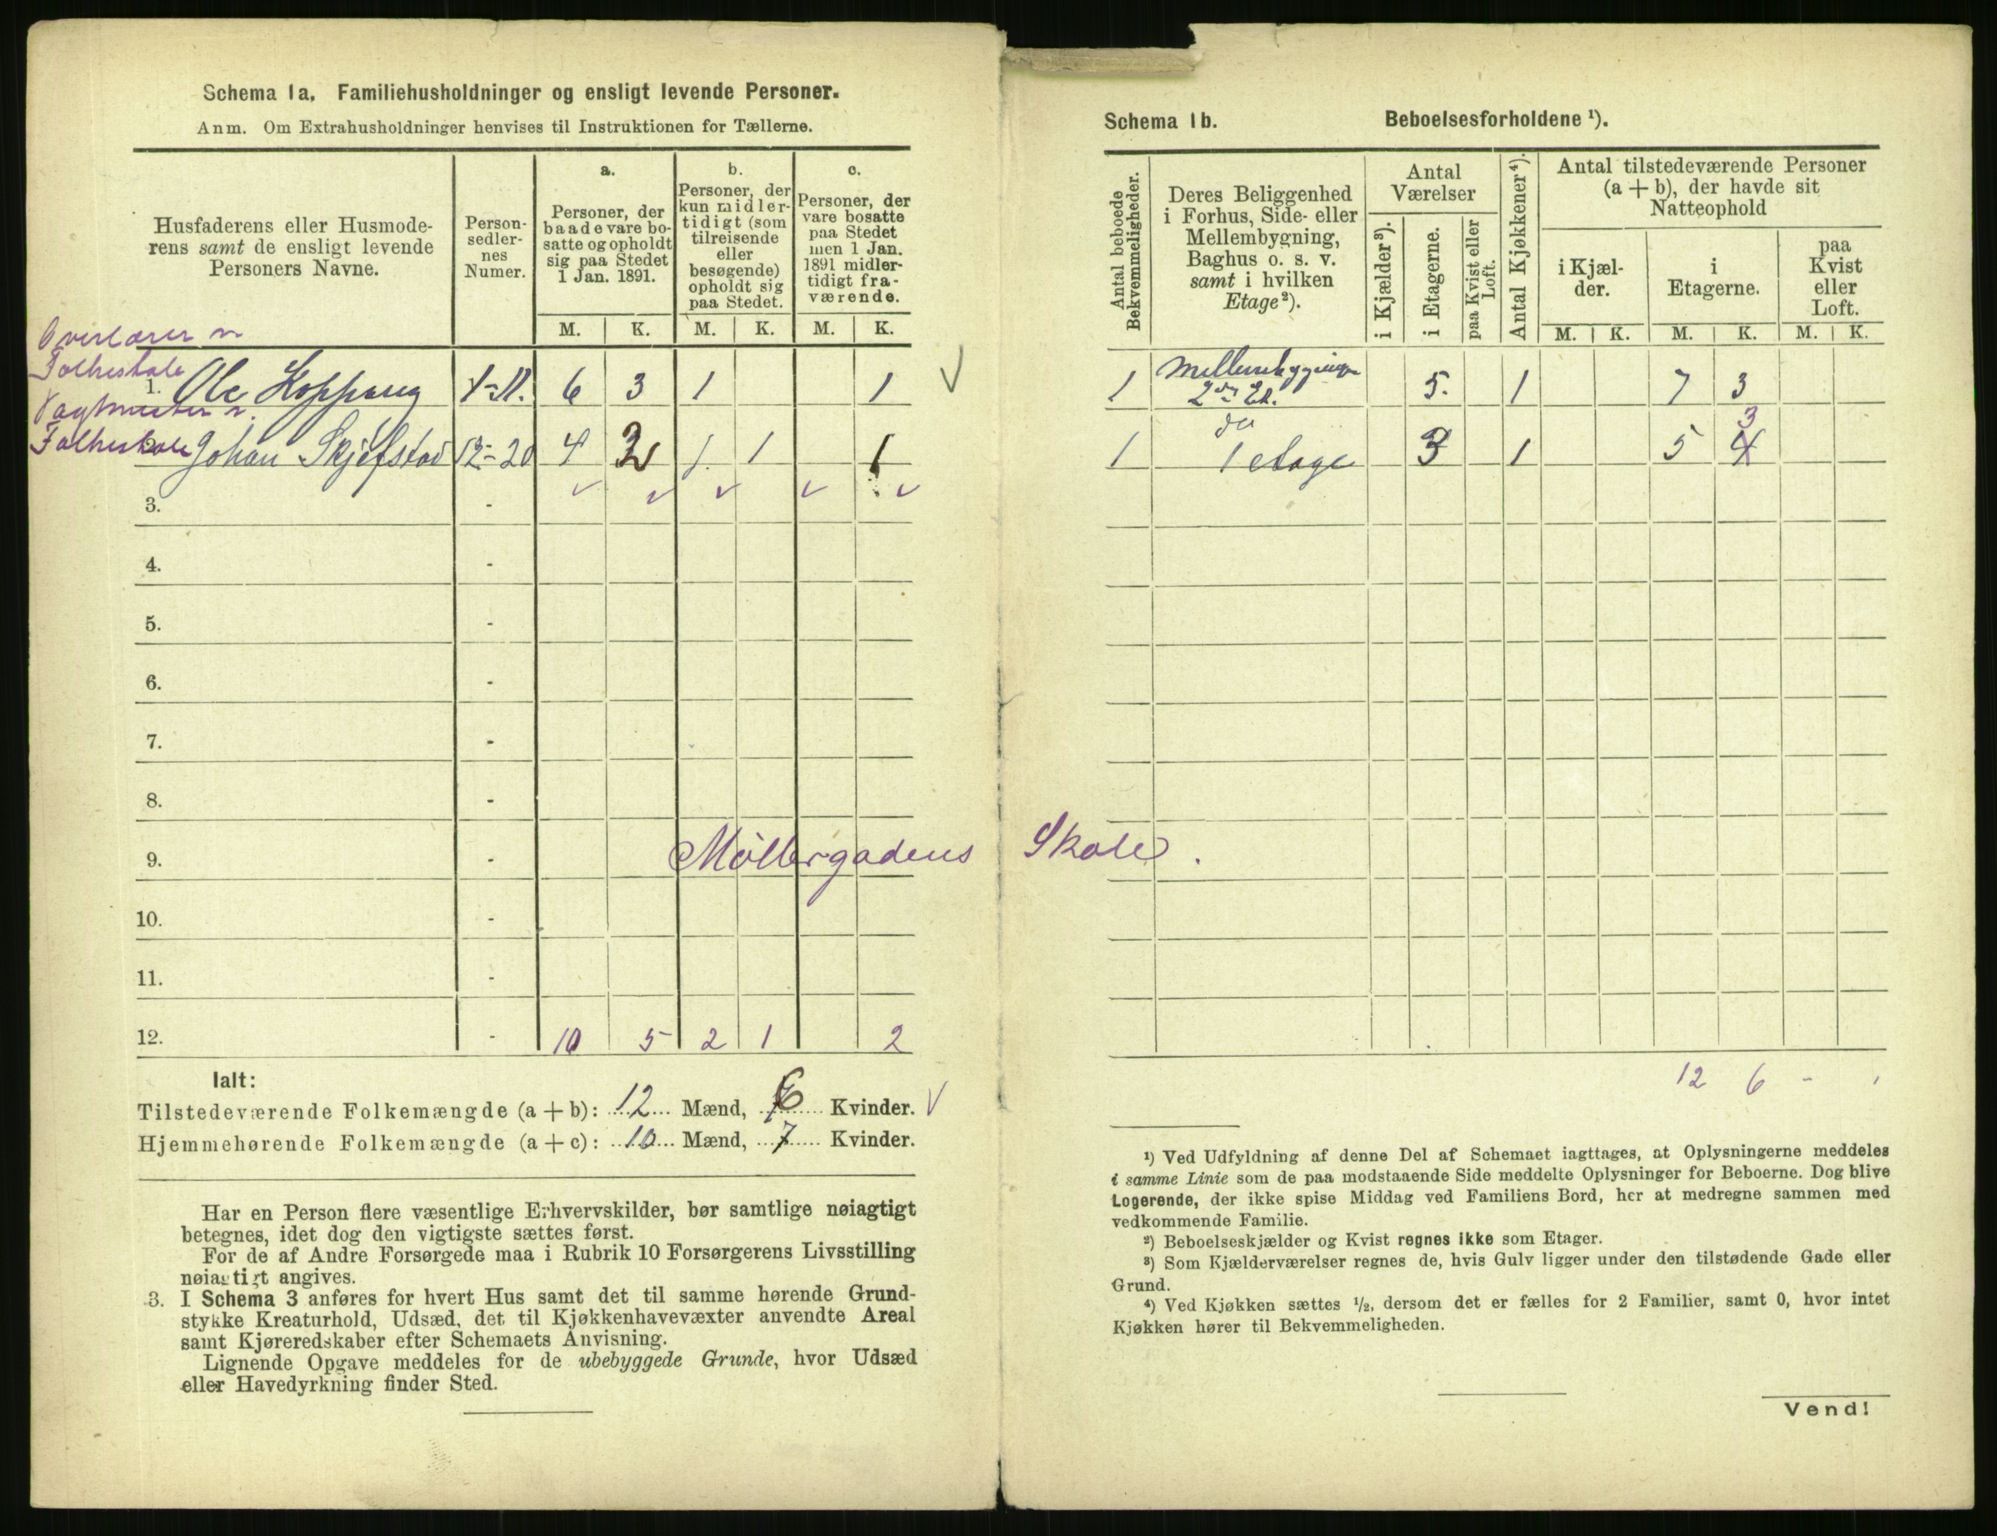 Schema 1a. Familiehusholdninger og ensligt levende Personer.
Anm. Om Extrahusholdninger henvises til Instruktionen for Tællerne.
Husfaderens eller Husmode-
rens samt de ensligt levende
Personers Navne.
Person-
sedler-
nes
Numer.
a.
Personer, der
baade vare bo-
satte og opholdt
sig paa Stedet
1 Jan. 1891.
b.
Personer, der
kun midler-
tidigt (som
tilreisende
eller
besøgende)
opholdt sig
paa Stedet.
c.
Personer, der
vare bosatte
paa Stedet
men 1 Jan.
1891 midler-
tidigt fra-
værende.
M. K. M. K. M. K.
Overlærer v.
Folkeskole
1. Ole Koppang 1-11. 6 3 1 1
Vagtmester v.
Folkeskole
Johan Skjefstad 12-20 4 2 1 1 1
3. -
4. -
5. -
6. -
7. -
8. -
9. -
Møllergadens Skole.
10. -
11. -
12. - 10 5 2 1 2
Ialt:
Tilstedeværende Folkemængde (a + b): 12 Mænd, 6 Kvinder.
Hjemmehørende Folkemængde (a + c): 10 Mænd, 7 Kvinder.
Har en Person flere væsentlige Erhvervskilder, bør samtlige nøiagtigt
betegnes, idet dog den vigtigste sættes først.
For de af Andre Forsørgede maa i Rubrik 10 Forsørgerens Livsstilling
nøiagtigt angives.
3. I Schema 3 anføres for hvert Hus samt det til samme hørende Grund-
stykke Kreaturhold, Udsæd, det til Kjøkkenhavevæxter anvendte Areal
samt Kjøreredskaber efter Schemaets Anvisning.
Lignende Opgave meddeles for de ubebyggede Grunde, hvor Udsæd
eller Havedyrkning finder Sted.
Schema 1b. Beboelsesforholdene ¹).
Antal beboede
Bekvemmeligheder.
Deres Beliggenhed
i Forhus, Side- eller
Mellembygning,
Baghus o. s. v.
samt i hvilken
Etage²).
Antal
Værelser
i Kjælder ³).
i Etagerne.
paa Kvist eller
Loft.
Antal Kjøkkener ⁴).
Antal tilstedeværende Personer
(a + b), der havde sit
Natteophold
i Kjæl-
der.
i
Etagerne.
paa
Kvist
eller
Loft.
M. K. M. K. M. K.
1 Mellembygning 5. 1 7 3
2den Et.
do 3
1 1 etage 3 1 5 4
12 6 -
¹) Ved Udfyldning af denne Del af Schemaet iagttages, at Oplysningerne meddeles
i samme Linie som de paa modstaaende Side meddelte Oplysninger for Beboerne. Dog blive
Logerende, der ikke spise Middag ved Familiens Bord, her at medregne sammen med
vedkommende Familie.
²) Beboelseskjælder og Kvist regnes ikke som Etager.
³) Som Kjælderværelser regnes de, hvis Gulv ligger under den tilstødende Gade eller
Grund.
⁴) Ved Kjøkken sættes ½, dersom det er fælles for 2 Familier, samt 0, hvor intet
Kjøkken hører til Bekvemmeligheden.
Vend!